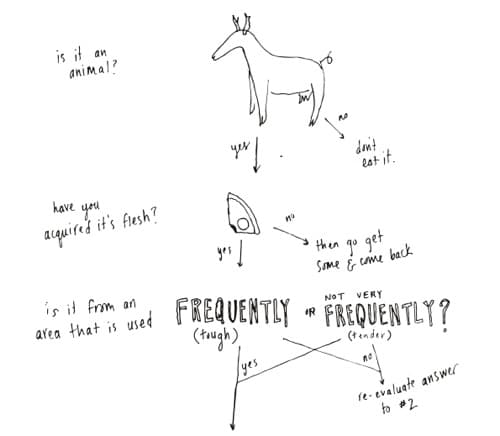 is it an
animal?
no
yes
don't
eat it.
have you
acquired it's flesh?
no
then go get
some & come back
yes
is it from an
area that is used
FREQUENTLY
(tough)
OR
NOT VERY
FREQUENTLY?
(tender)
yes
no
re-evaluate answer
to #2